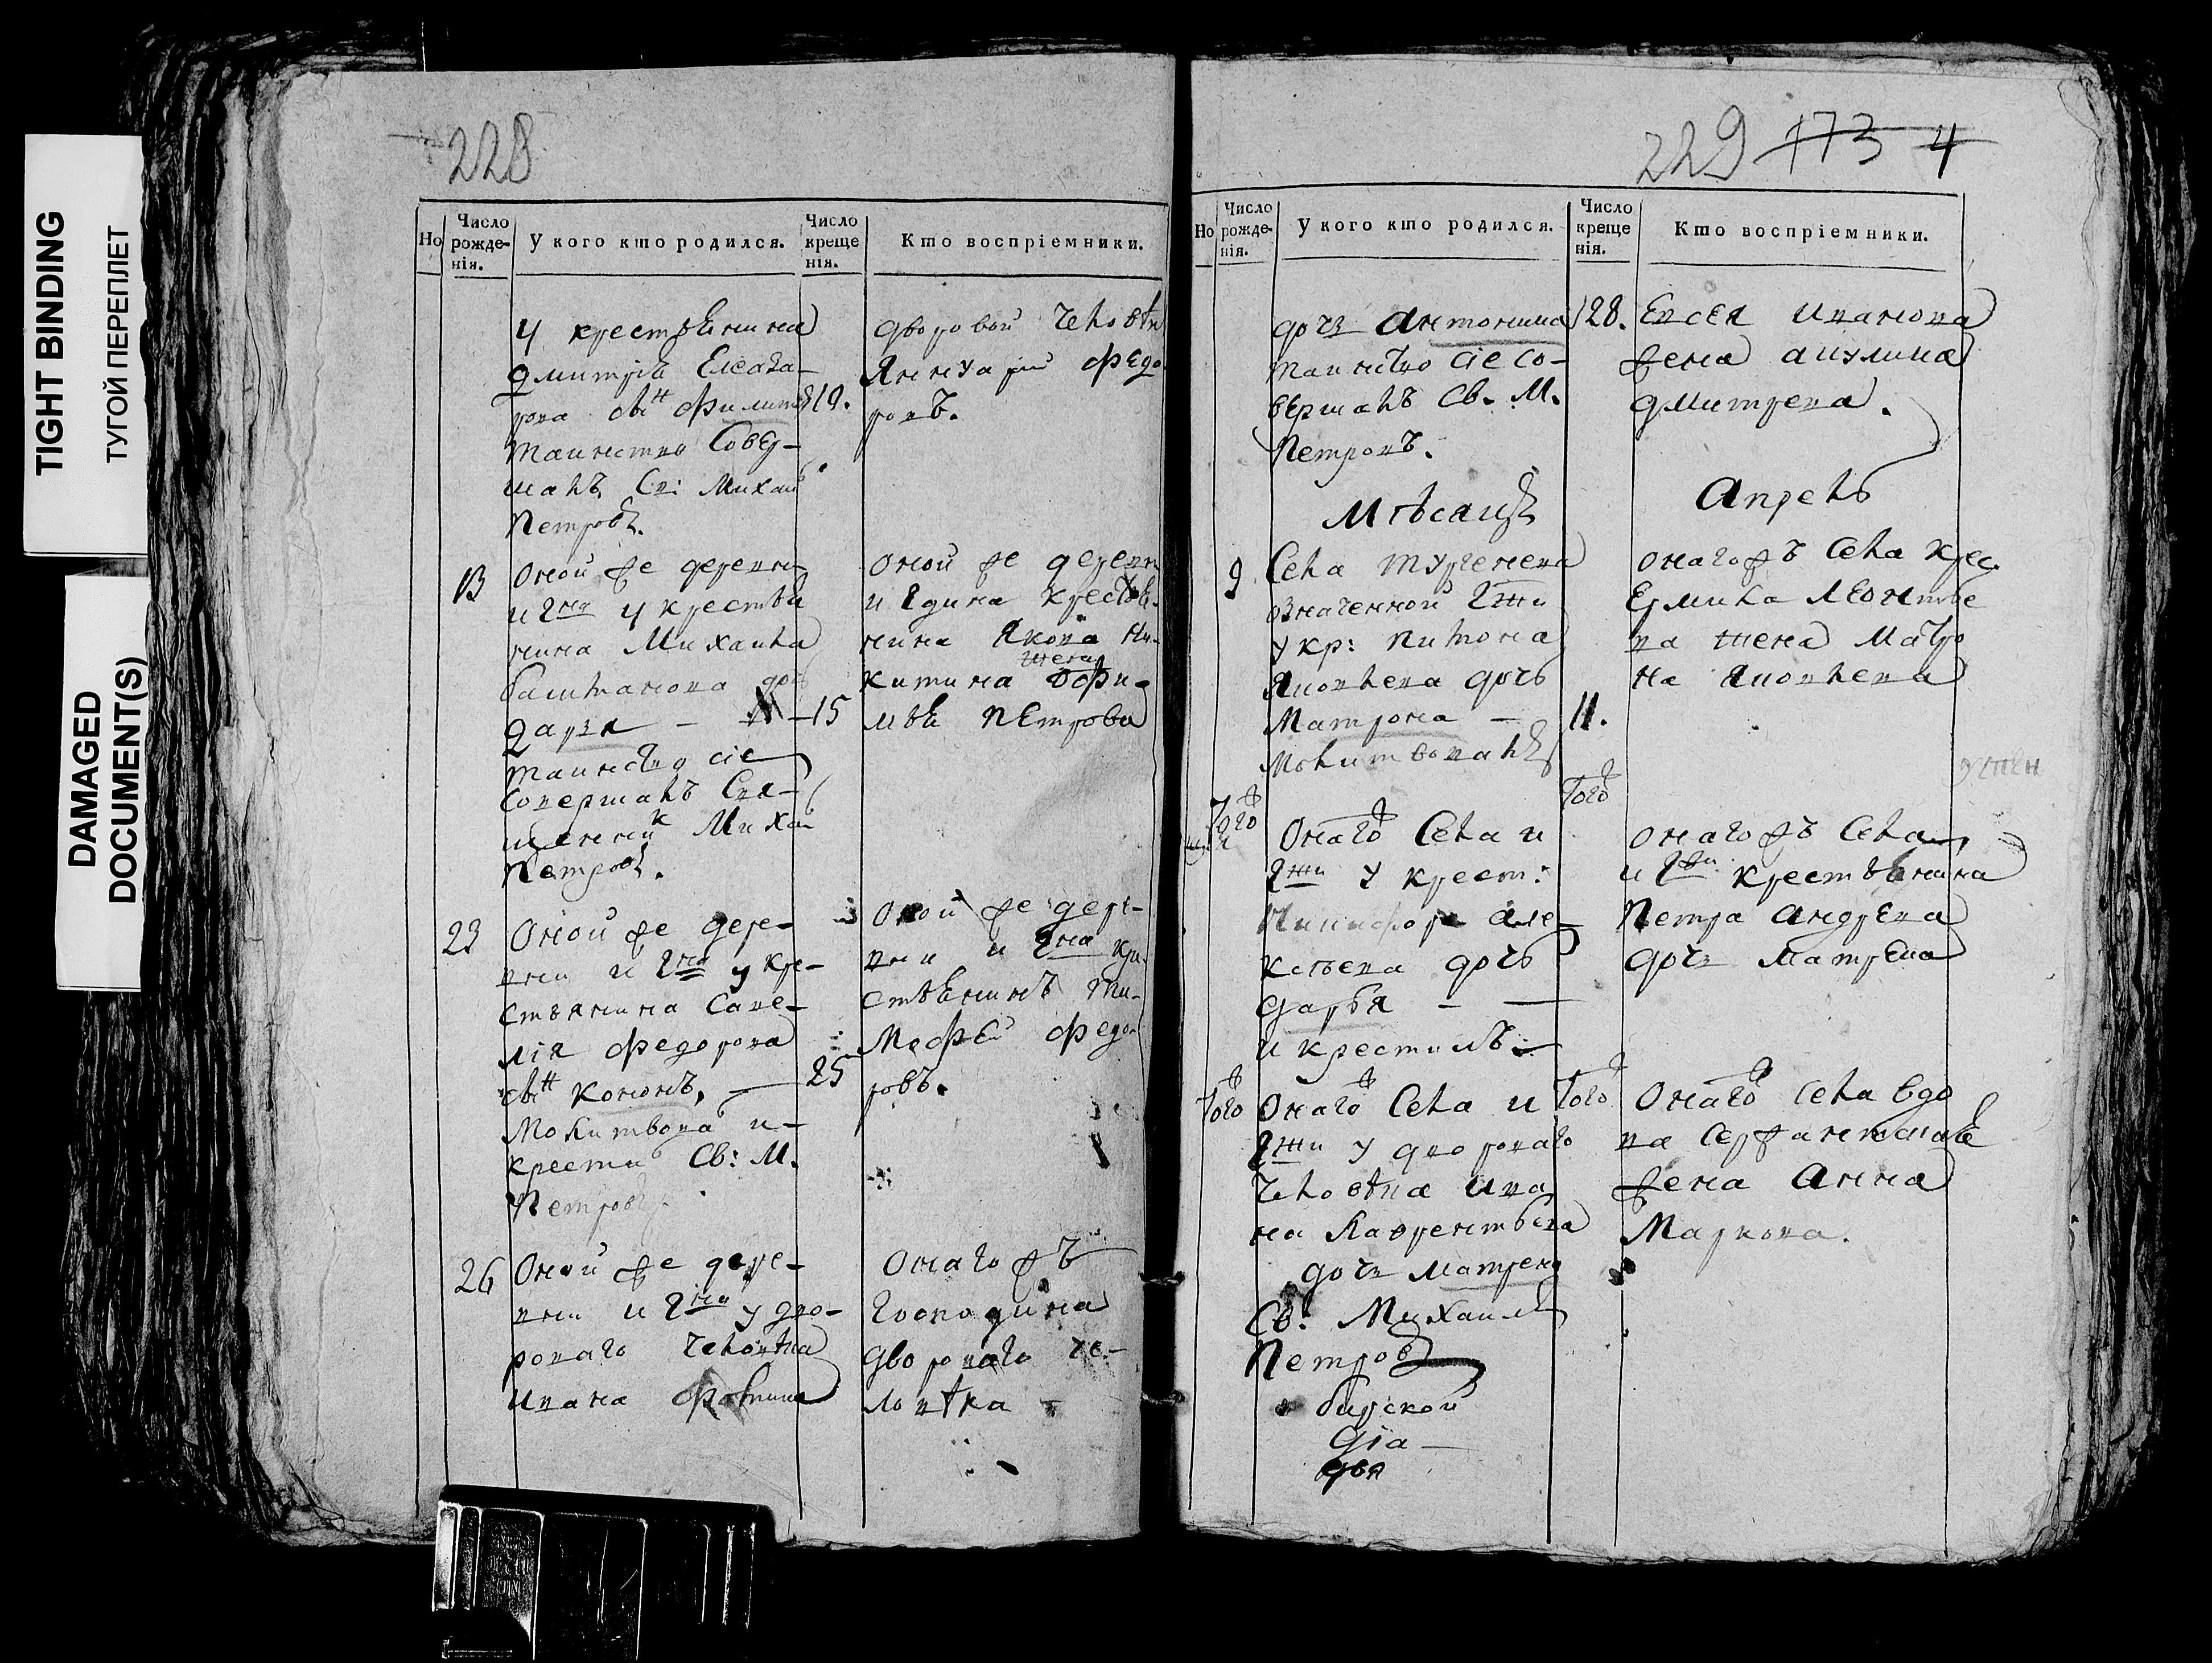 TIGHT BINDING
ТУГОЙ ПЕРЕПЛЕТ
DAMAGED
DOCUMENT(S)
228
Но
Число рожденія.
У кого кто родился.
Число крещенія.
Кто воспріемники.
у крестьянина
Дмитрія Елеаза-
рова сынъ Филипъ 19.
таинство совер-
шалъ Св: Михаи
Петровъ.
дворовой человѣк
Яннуарій Федо
ровъ.
13
Оной же деревни
и Гна у крестья
нина Михаила
дочь
Дарья — 15
таинство сіе
совершалъ Свя-
щенник Михаи
Петровъ.
Оной же деревни
и Гдина крестья-
нина Якова Ни-
жена
китина Софи-
Петрова
23
Оной же дере-
вни и Гна у кре-
стьянина Саве-
лія Федорова
сынъ Кононъ, — 25
Молитвова и-
крести Св: М.
Петровъ.
Оной же дере-
вни и Гна кре
стьянинъ Ти-
мофей Федо
ровъ.
26
Оной же дере-
вни и Гна у дво-
роваго человѣка
Ивана
Онаго жъ
Господина
Двороваго че-
ловѣка —
229 173 4
Но
Число рожденія.
У кого кто родился.
Число крещенія.
Кто воспріемники.
дочь Антонина 28.
таинство сіе со-
вершалъ Св. М.
Петровъ.
Евсея Иванова
жена Акулина
Дмитрева.
Мѣсяцъ Апрель
9
Села Тургенева
означенной Гжи
у кр: 
Яковлева дочь
Матрона — 11.
Молитвовалъ
Онагожъ села крес.
Ермила Леонтье
ва жена Матро
на Яковлева
Тогожъ
Онагожъ Села и
Гжи у крест:
Никифора Але-
ксѣева дочь
Дарья — —
и крестилъ —
Тогожъ
Онаго жъ Села
и Гжи крестьянина
Петра Андрева
дочь Матрена
Тогожъ
Онагожъ Села и
Гжи у двороваго
человѣка Ива
на Лаврентьева
дочь Матрена
Св: Михаилъ
Петровъ
Тогожъ
Онагожъ села вдо
ва
жена Анна
Маркова.
бирской
діа-